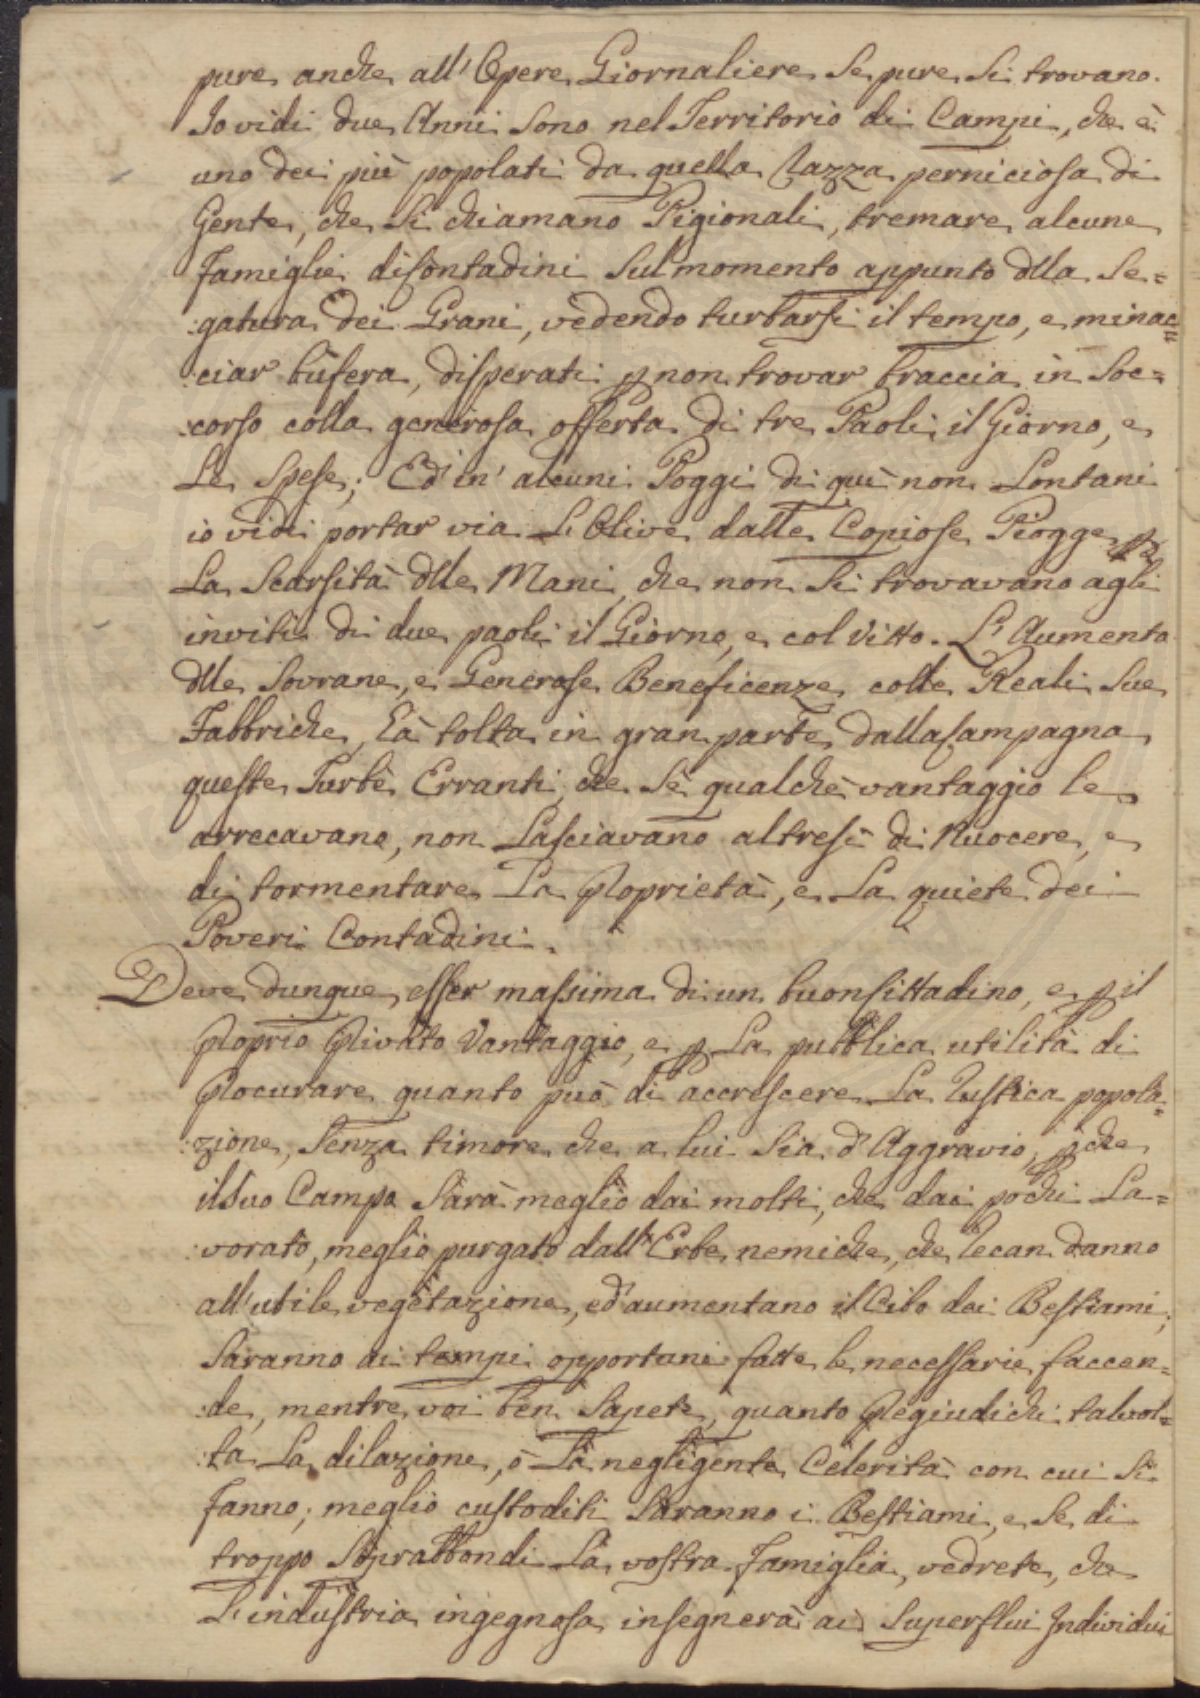 pure anche all'Opere Giornaliere se pure si trovano.
Io vidi due Anni sono nel Territorio di Campi, che è
uno dei più popolati da quella Razza perniciosa di
Gente, che si chiamano Pigionali, tremare alcune
Famiglie di Contadini sul momento appunto dlla Se=
:gatura dei Grani, vedendo turbarsi il tempo, e minac=
:ciar bufera, disperati p non trovar braccia in soc=
:corso colla generosa offerta di tre Paoli il Giorno, e
Le spese; Ed in alcuni Poggi di quì non Lontani
io vidi portar via L'Olive dalle Copiose Piogge p
La Scarsità dlle Mani, che non si trovavano agli
inviti di due paoli il Giorno, e col Vitto. L'Aumento
dlle Sovrane, e Generose Beneficenze colle Reali sue
Fabbriche, Hà tolta in gran parte dalla Campagna
queste Turbe Erranti, che sè qualche vantaggio le
arrecavano, non Lasciavano altresì di Nuocere, e
di tormentare La Proprietà, e La quiete dei
Poveri Contadini.
Deve dunque esser massima di un buon Cittadino, e p il
Proprio Privato Vantaggio, e p La pubblica utilità di
Procurare quanto può di accrescere La Rustica popola=
:zione, senza timore che a lui sia d'Aggravio, pche
il suo Campo sarà meglio dai molti, che dai pochi La=
:vorato, meglio purgato dall'Erbe nemiche, che recan danno
all'utile vegetazione, ed aumentano il Cibo dei Bestiami;
Saranno ai tempi opportuni fatte le necessarie faccen=
:de, mentre voi ben sapete, quanto Pregiudichi talvol=
:ta La dilazione, ò La negligente Celerità con cui si
Fanno; meglio custoditi saranno i Bestiami, e se di
troppo Soprabbondi La vostra Famiglia, vedrete, che
L'industria ingegnosa insegnerà ai superflui Individui